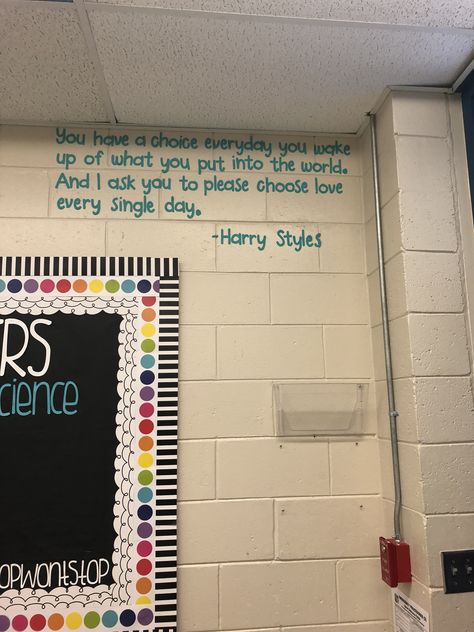 You have a choice everyday you wake
up of what you put into the world.
And I ask you to please choose love
every single day.
-Harry Styles
ERS
cience
opwontstop